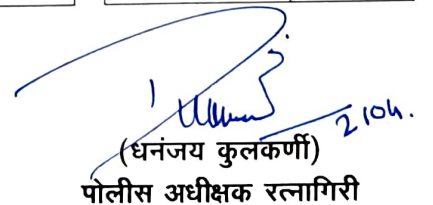 (धनंजय कुलकर्णी)
पोलीस अधीक्षक रत्नागिरी